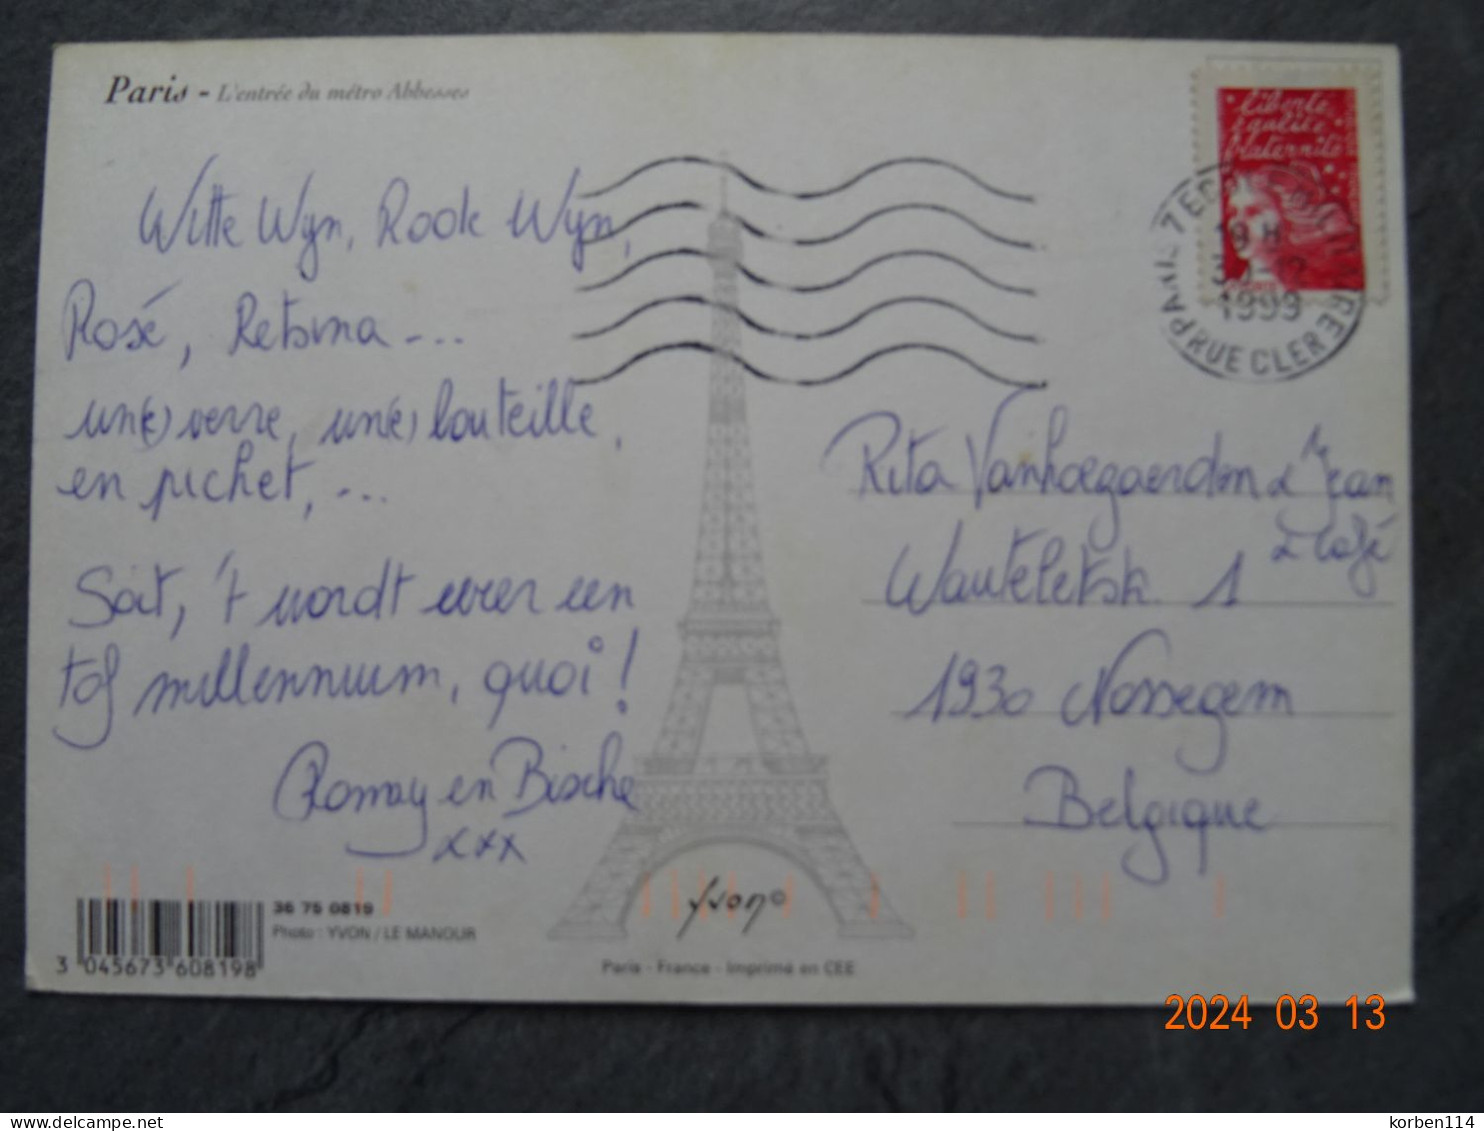 Paris - L'entrée du métro Abbesses
Witte Wyn, Rook Wyn,
Rosé, Retsina -...
un(e) verre, un(e) bouteille,
en pichet, -...
Soit, 't wordt weer een
tof millennium, quoi!
Romay en Bische
xxx
liberté
égalité
fraternité
PARIS 7E
19 H
1999
PARIS RUE CLER
Rita Vanhoegaerden & Jean
& Café
Wauteletstr. 1
1930 Nossegem
Belgique
36 75 0819
Photo : YVON / LE MANOUR
3 045673 608198
yvon
Paris - France - Imprimé en CEE
2024 03 13
korben114